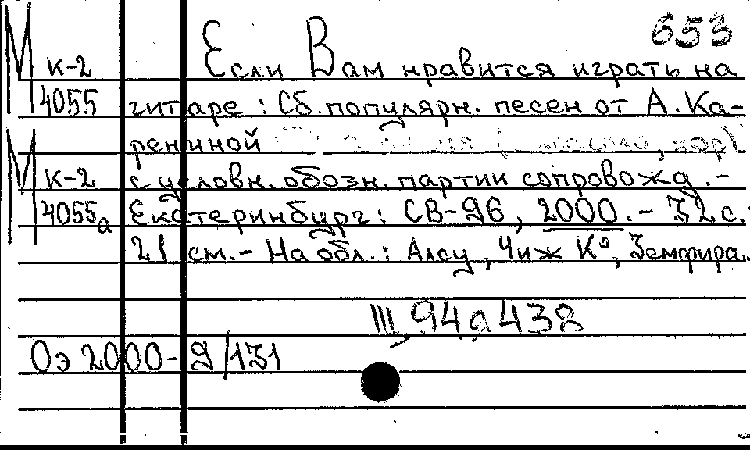 653
М к-2 Если Вам нравится играть на
4055 гитаре : Сб. популярн. песен от А. Ка-
рениной
М к-2 с условн. обозн. партии сопровожд. -
4055а Екатеринбург : СВ-96, 2000. - 32 с.;
21 см. - На обл.: Алсу, Чиж Кº, Земфира.
III, 94а438
Оэ 2000-9/131